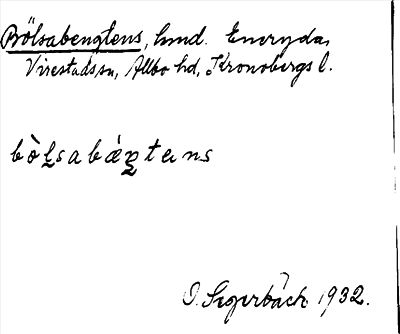 Bölsabengtens, hmd. Eneryda,
Virestads sn, Allbo hd, Kronobergs l.
bòlsabæ̀ŋtens
J. Segerbäck 1932.